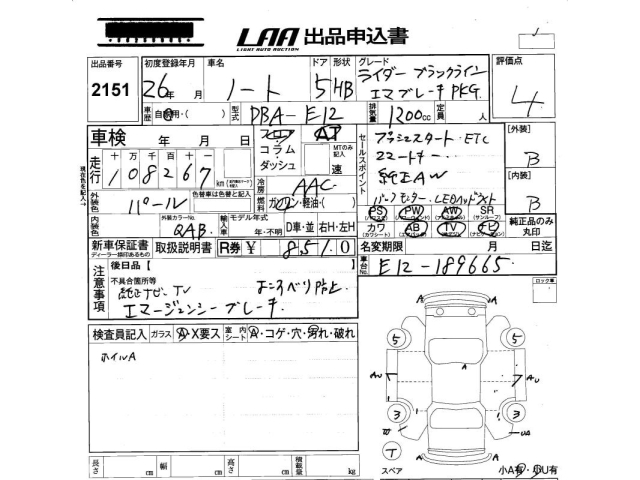 LAA 出品申込書
LIGHT AUTO AUCTION
出品番号 初度登録年月 車名 ドア 形状 グレード 評価点
2151 26年 月 ノート 5 HB ライダー ブラックライン
エマブレーキ PKG. 4
車歴 自家用・( ) 型式 DBA-E12 排気量 1200cc 定員 人
車検 年 月 日 フロア AT
コラム MTのみ記入
ダッシュ 速
走行 十 万 千 百 十
108267 km
冷房 AAC
燃料 ガソリン・軽油・( )
外装色 パール 色替車は色替と記入
外装カラーNo. QAB
輸入車 モデル年式 年・不明 D車・並 右H・左H
セールスポイント プッシュスタート・ETC
純正AW
PS PW AW SR
カワ AB TV ナビ
[外装] B
[内装] B
純正品のみ丸印
新車保証書 取扱説明書 R券 ¥ 8510
ディーラー印のあるもの
名変期限 月 日迄
車台No. E12-189665
注意事項 後日品【 】
不具合箇所等
純正ナビ・TV
エマージェンシーブレーキ
検査員記入 ガラス A・X要ス 室内シート A・コゲ・穴・汚れ・破れ
ホイルA
ロック車
A A
5 5
AU AU
3 3
UA
T
スペア A A
小A有・小U有
長さ cm 幅 cm 高さ cm 積載量 kg